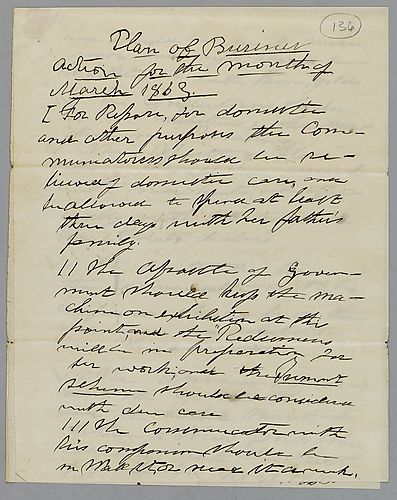 136
Plan of Business
action for the month of
March 1868.
I For Repose, for domestic
and other purposes the Com-
municatress should be re-
lieved of domestic care, and
be allowed to spend at least
three days with her father's
family.
II The Apostle of Govern-
ment should keep the ma-
chine on exhibition at this
point, and the Redeemers
will be in preparation for
her work; and the
scheme should be considered
with due care
III The Communicator with
his companion should be
in Webster near the